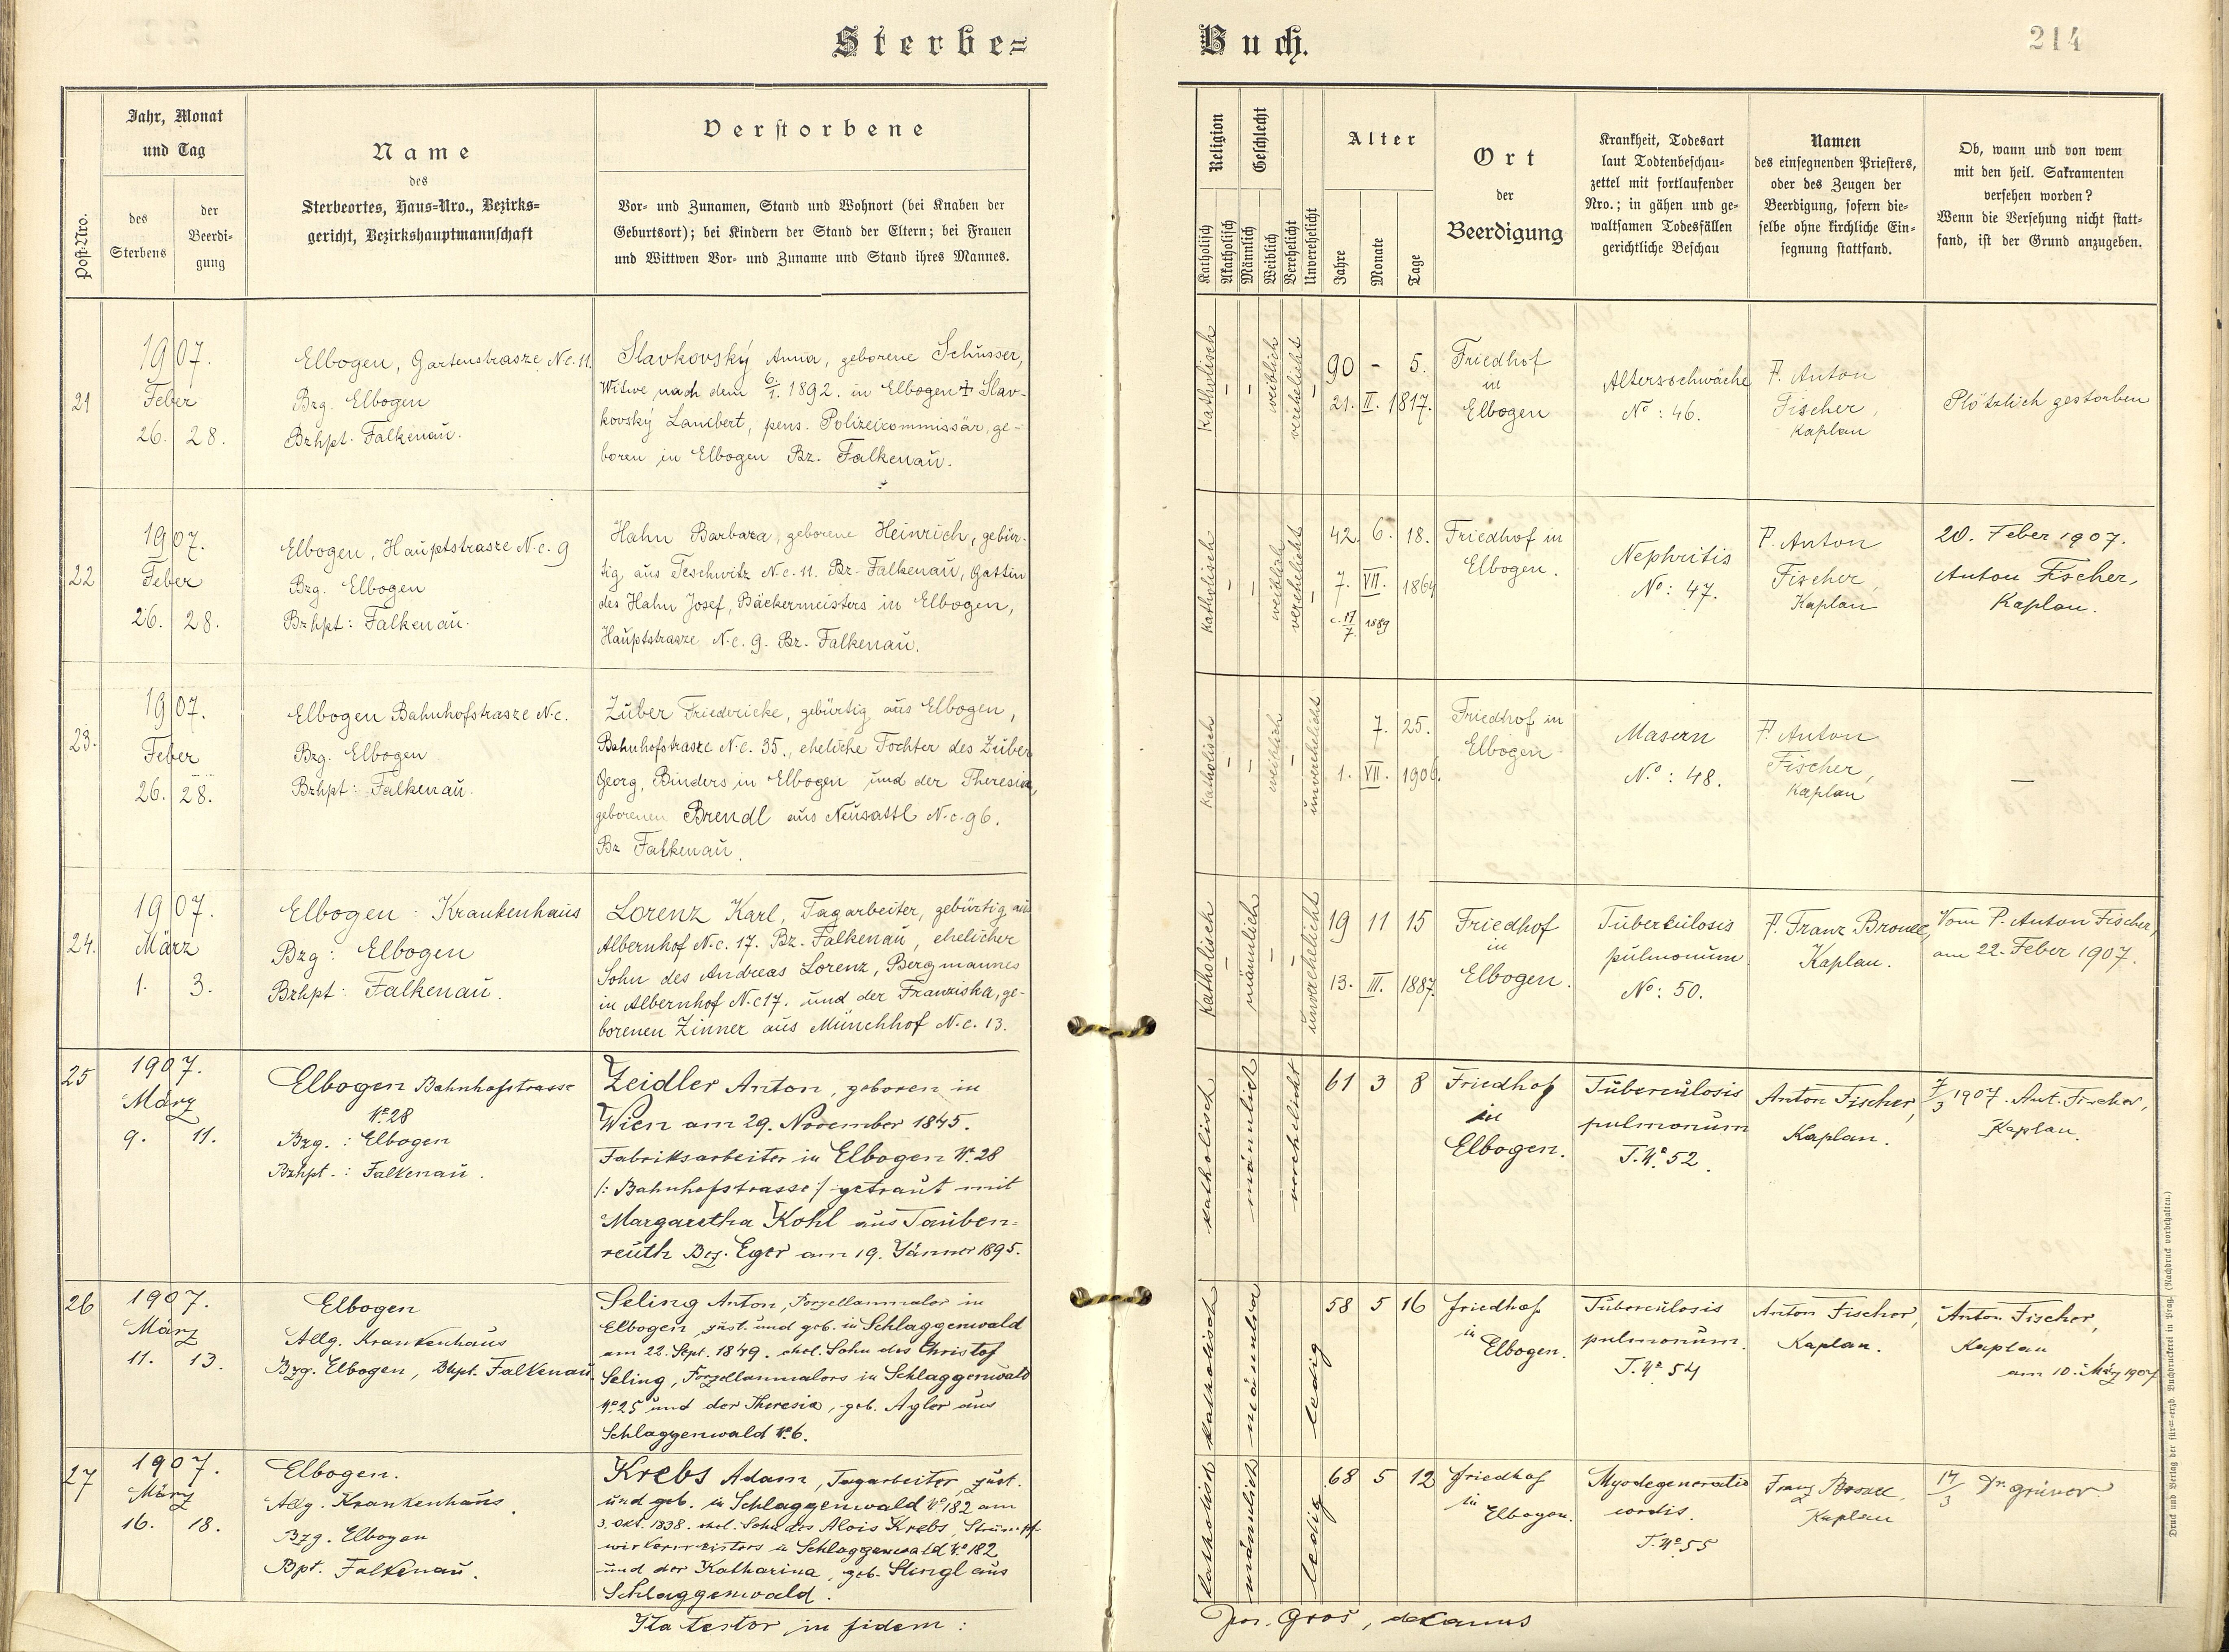 Sterbe=
Buch.
214
Post-Nro.
Jahr, Monat
und Tag
des
Sterbens
der
Beerdi-
gung
Name
des
Sterbeortes, Haus-Nro., Bezirks-
gericht, Bezirkshauptmannschaft
Verstorbene
Vor- und Zunamen, Stand und Wohnort (bei Knaben der
Geburtsort); bei Kindern der Stand der Eltern; bei Frauen
und Wittwen Vor- und Zuname und Stand ihres Mannes.
Religion
Katholisch
Akatholisch
Geschlecht
Männlich
Weiblich
Verehelicht
Unverehelicht
Alter
Jahre
Monate
Tage
Ort
der
Beerdigung
Krankheit, Todesart
laut Todtenbeschau-
zettel mit fortlaufender
Nro.; in gähen und ge-
waltsamen Todesfällen
gerichtliche Beschau
Namen
des einsegnenden Priesters,
oder des Zeugen der
Beerdigung, sofern die-
selbe ohne kirchliche Ein-
segnung stattfand.
Ob, wann und von wem
mit den heil. Sakramenten
versehen worden?
Wenn die Versehung nicht statt-
fand, ist der Grund anzugeben.
21
1907.
Feber
26. 28.
Elbogen, Gartenstrasze N.c. 11.
Bzg. Elbogen
Bzhpt. Falkenau.
Slavkovský Anna, geborene Schusser,
Witwe nach dem 6/1. 1892. in Elbogen + Slav-
kovský Lambert, pens. Polizeicommissär, ge-
boren in Elbogen Bz. Falkenau.
katholisch
-
-
weiblich
verehelicht
-
90 - 5.
21. II. 1817.
Friedhof
in
Elbogen
Altersschwäche
No: 46.
P. Anton
Fischer,
Kaplan
Plötzlich gestorben
22
1907.
Feber
26. 28.
Elbogen, Hauptstrasze N.c. 9
Bzg. Elbogen
Bzhpt: Falkenau.
Hahn Barbara, geborene Heinrich, gebür-
tig aus Teschwitz N.c. 11. Bz. Falkenau, Gattin
des Hahn Josef, Bäckermeisters in Elbogen,
Hauptstrasze N.c. 9. Bz. Falkenau.
katholisch
-
-
weiblich
verehelicht
-
42. 6. 18.
7. VII. 1864
c. 17/7. 1889
Friedhof in
Elbogen.
Nephritis
No: 47.
P. Anton
Fischer,
Kaplan
20. Feber 1907.
Anton Fischer,
Kaplan.
23.
1907.
Feber
26. 28.
Elbogen Bahnhofstrasze N.c.
Bzg. Elbogen
Bzhpt: Falkenau.
Zuber Friedericke, gebürtig aus Elbogen,
Bahnhofstrasze N.c. 35., eheliche Tochter des Zuber
Georg, Binders in Elbogen und der Theresia,
geborenen Brendl aus Neusattl N.c. 96.
Bz Falkenau.
katholisch
-
-
weiblich
-
unverehelicht
7. 25.
1. VII. 1906.
Friedhof in
Elbogen
Masern
No: 48.
P. Anton
Fischer,
Kaplan
—
24.
1907.
März
1. 3.
Elbogen: Krankenhaus
Bzg: Elbogen
Bzhpt: Falkenau.
Lorenz Karl, Tagarbeiter, gebürtig aus
Albernhof N.c. 17. Bz. Falkenau, ehelicher
Sohn des Andreas Lorenz, Bergmannes
in Albernhof N.c 17. und der Franziska, ge-
borenen Zinner aus Münchhof N.c. 13.
katholisch
-
männlich
-
-
unverehelicht
19 11 15
13. III. 1887.
Friedhof
in
Elbogen.
Tuberculosis
pulmonum
No: 50.
P. Franz
Kaplan.
Vom P. Anton Fischer,
am 22. Feber 1907.
25
1907.
März
9. 11.
Elbogen Bahnhofstrasse
No 28
Bzg.: Elbogen
Bzhpt.: Falkenau.
Zeidler Anton, geboren in
Wien am 29. November 1845.
Fabriksarbeiter in Elbogen No 28
/: Bahnhofstrasse :/ getraut mit
Margaretha Kohl aus Tauben-
reuth Bez. Eger am 19. Jänner 1895.
katholisch
männlich
verehelicht
61 3 8
Friedhof
in
Elbogen.
Tuberculosis
pulmonum
T. No 52.
Anton Fischer,
Kaplan.
7/3 1907. Ant. Fischer,
Kaplan.
26
1907.
März
11. 13.
Elbogen
Allg. Krankenhaus
Bzg. Elbogen, Bhpt. Falkenau.
Seling Anton, Porzellanmaler in
Elbogen, zust. und geb. in Schlaggenwald
am 22. Sept. 1849. ehel. Sohn des Christof
Seling, Porzellanmalers in Schlaggenwald
No 25 und der Theresia, geb. Agler aus
Schlaggenwald No 6.
katholisch
männlich
ledig
58 5 16
Friedhof
in
Elbogen.
Tuberculosis
pulmonum.
T. No 54
Anton Fischer,
Kaplan.
Anton Fischer,
Kaplan
am 10. März 1907
27
1907.
März
16. 18.
Elbogen.
Allg. Krankenhaus.
Bzg. Elbogen
Bpt. Falkenau.
Krebs Adam, Tagarbeiter, zust.
und geb. in Schlaggenwald No 182 am
3. Okt. 1838. ehel. Sohn des Alois Krebs, Strumpf-
wirkermeisters in Schlaggenwald No 182
und der Katharina, geb. Stingl aus
Schlaggenwald.
katholisch
männlich
ledig
68 5 12
Friedhof
in
Elbogen.
Myodegeneratio
cordis.
T. No 55
Franz
Kaplan
14/3 Dr. Grüner.
Ita testor in fidem:
Jos. Groš, decanus
Druck und Verlag der fürst-erzb. Buchdruckerei in Prag. (Nachdruck vorbehalten.)